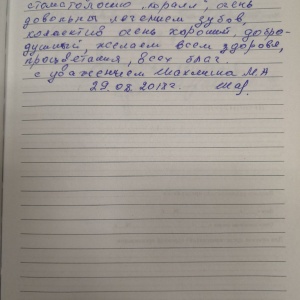 стоматологию „Коралл", очень
довольны лечением зубов,
коллектив очень хороший, добро-
душный, желаем всем здоровья,
процветания, всех благ.
с уважением М.А
29.08.2018г.